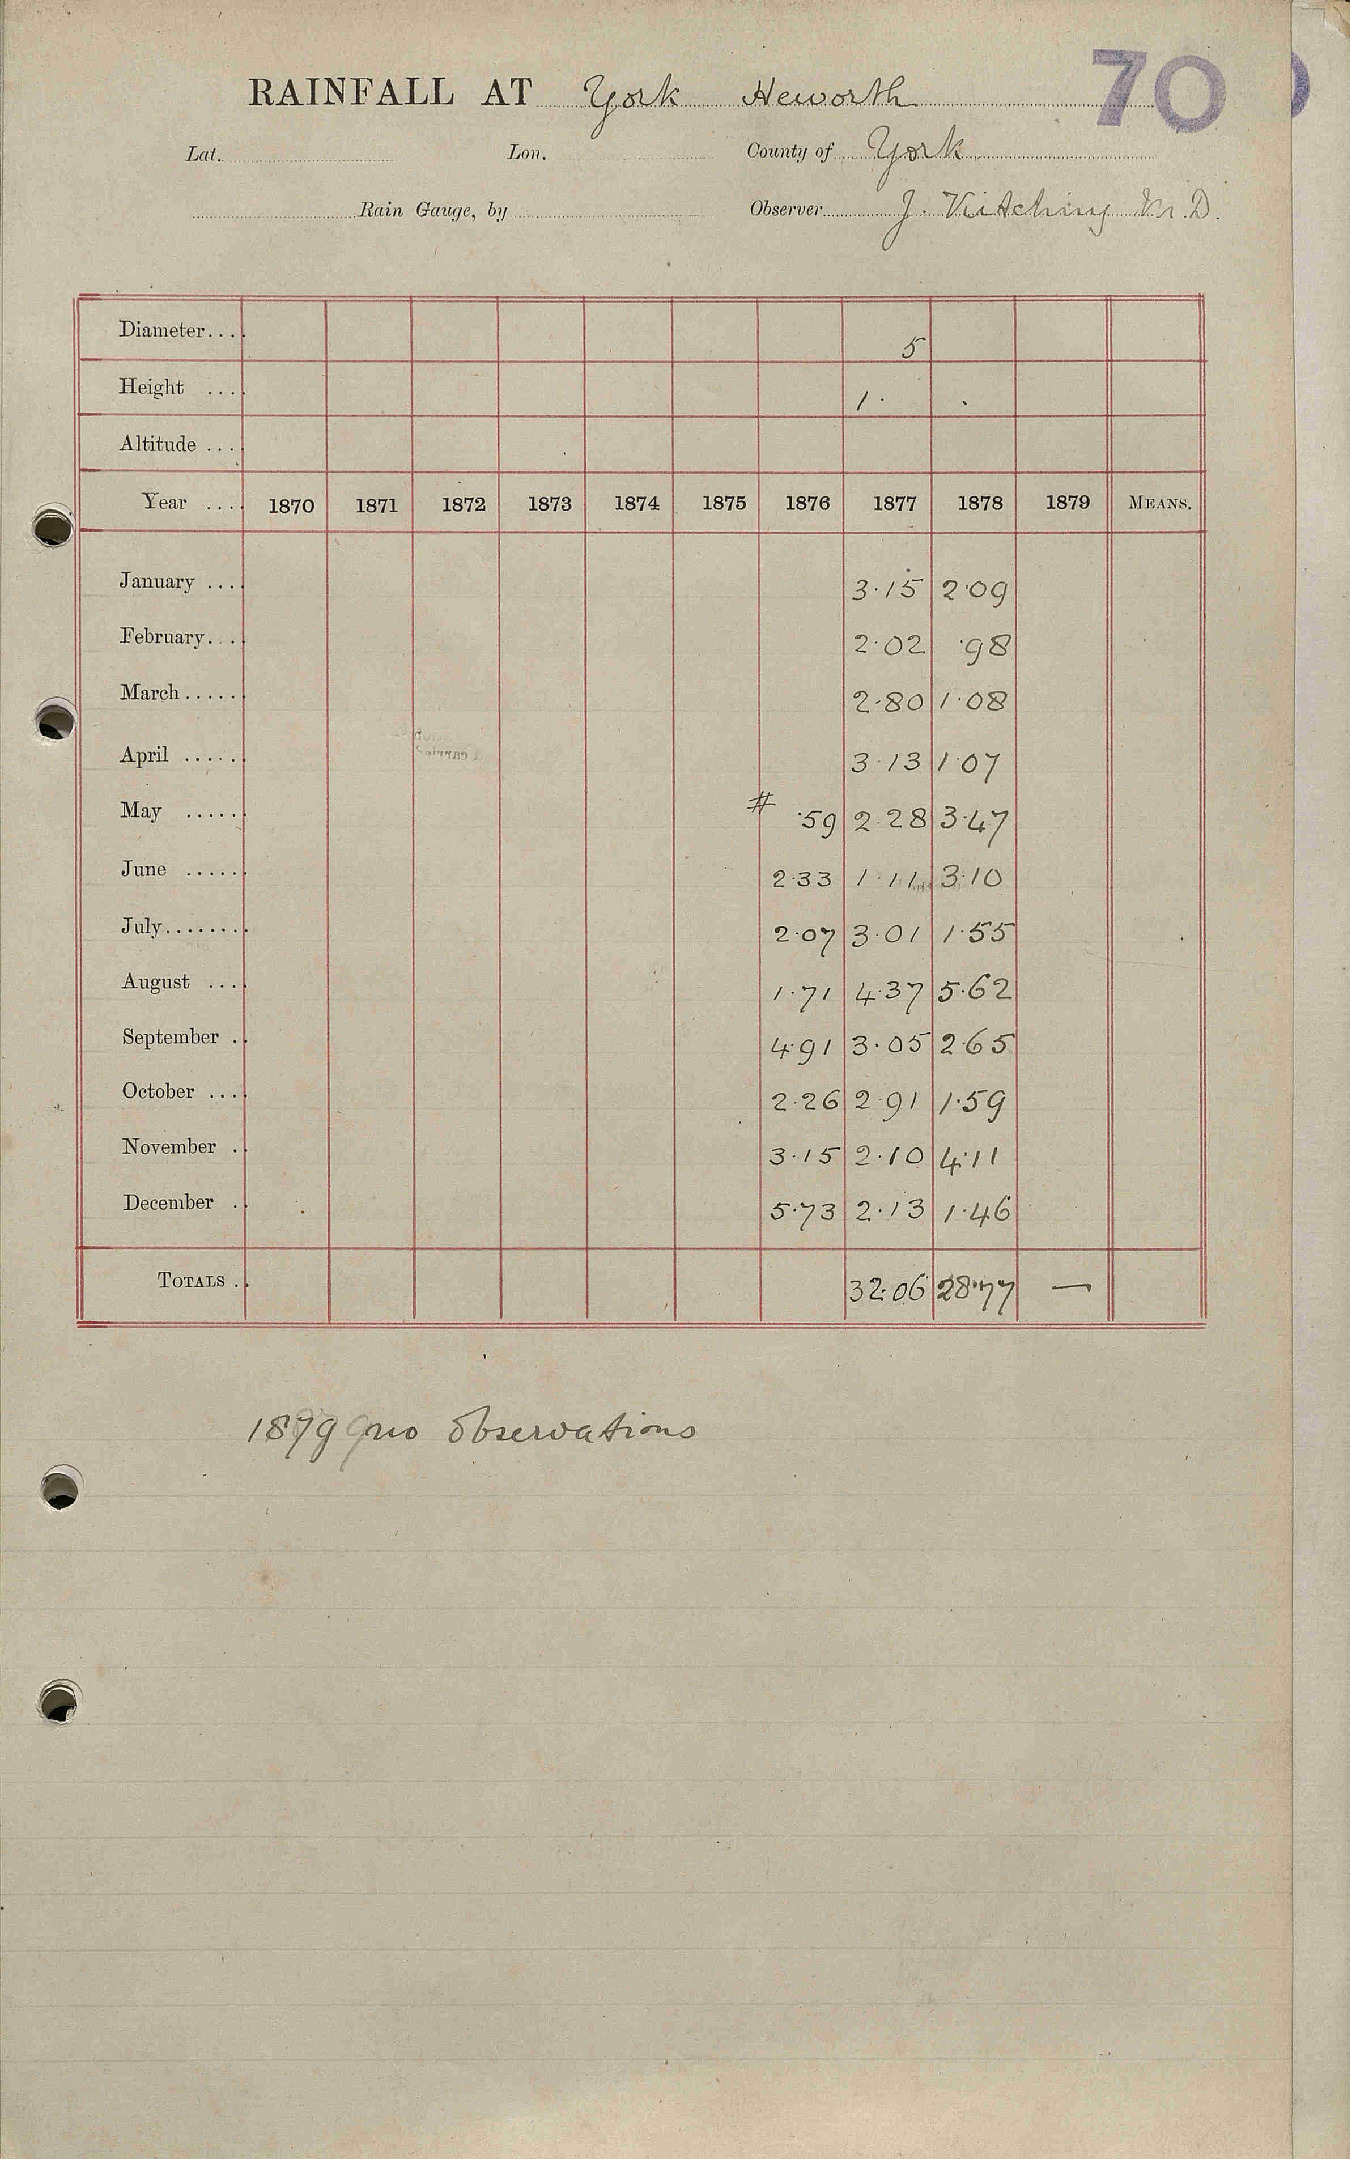 70
RAINFALL AT York Heworth
Lat. Lon. County of York
Rain Gauge, by Observer J. Kitching M.D.
Diameter.... 5
Height .... 1 .
Altitude ....
Year .... 1870 1871 1872 1873 1874 1875 1876 1877 1878 1879 MEANS.
January .... 3.15 2.09
February.... 2.02 .98
March...... 2.80 1.08
April ...... 3.13 1.07
May ...... # .59 2.28 3.47
June ...... 2.33 1.11 3.10
July........ 2.07 3.01 1.55
August .... 1.71 4.37 5.62
September .. 4.91 3.05 2.65
October .... 2.26 2.91 1.59
November .. 3.15 2.10 4.11
December .. 5.73 2.13 1.46
TOTALS .. 32.06 28.77 —
1879 no observations